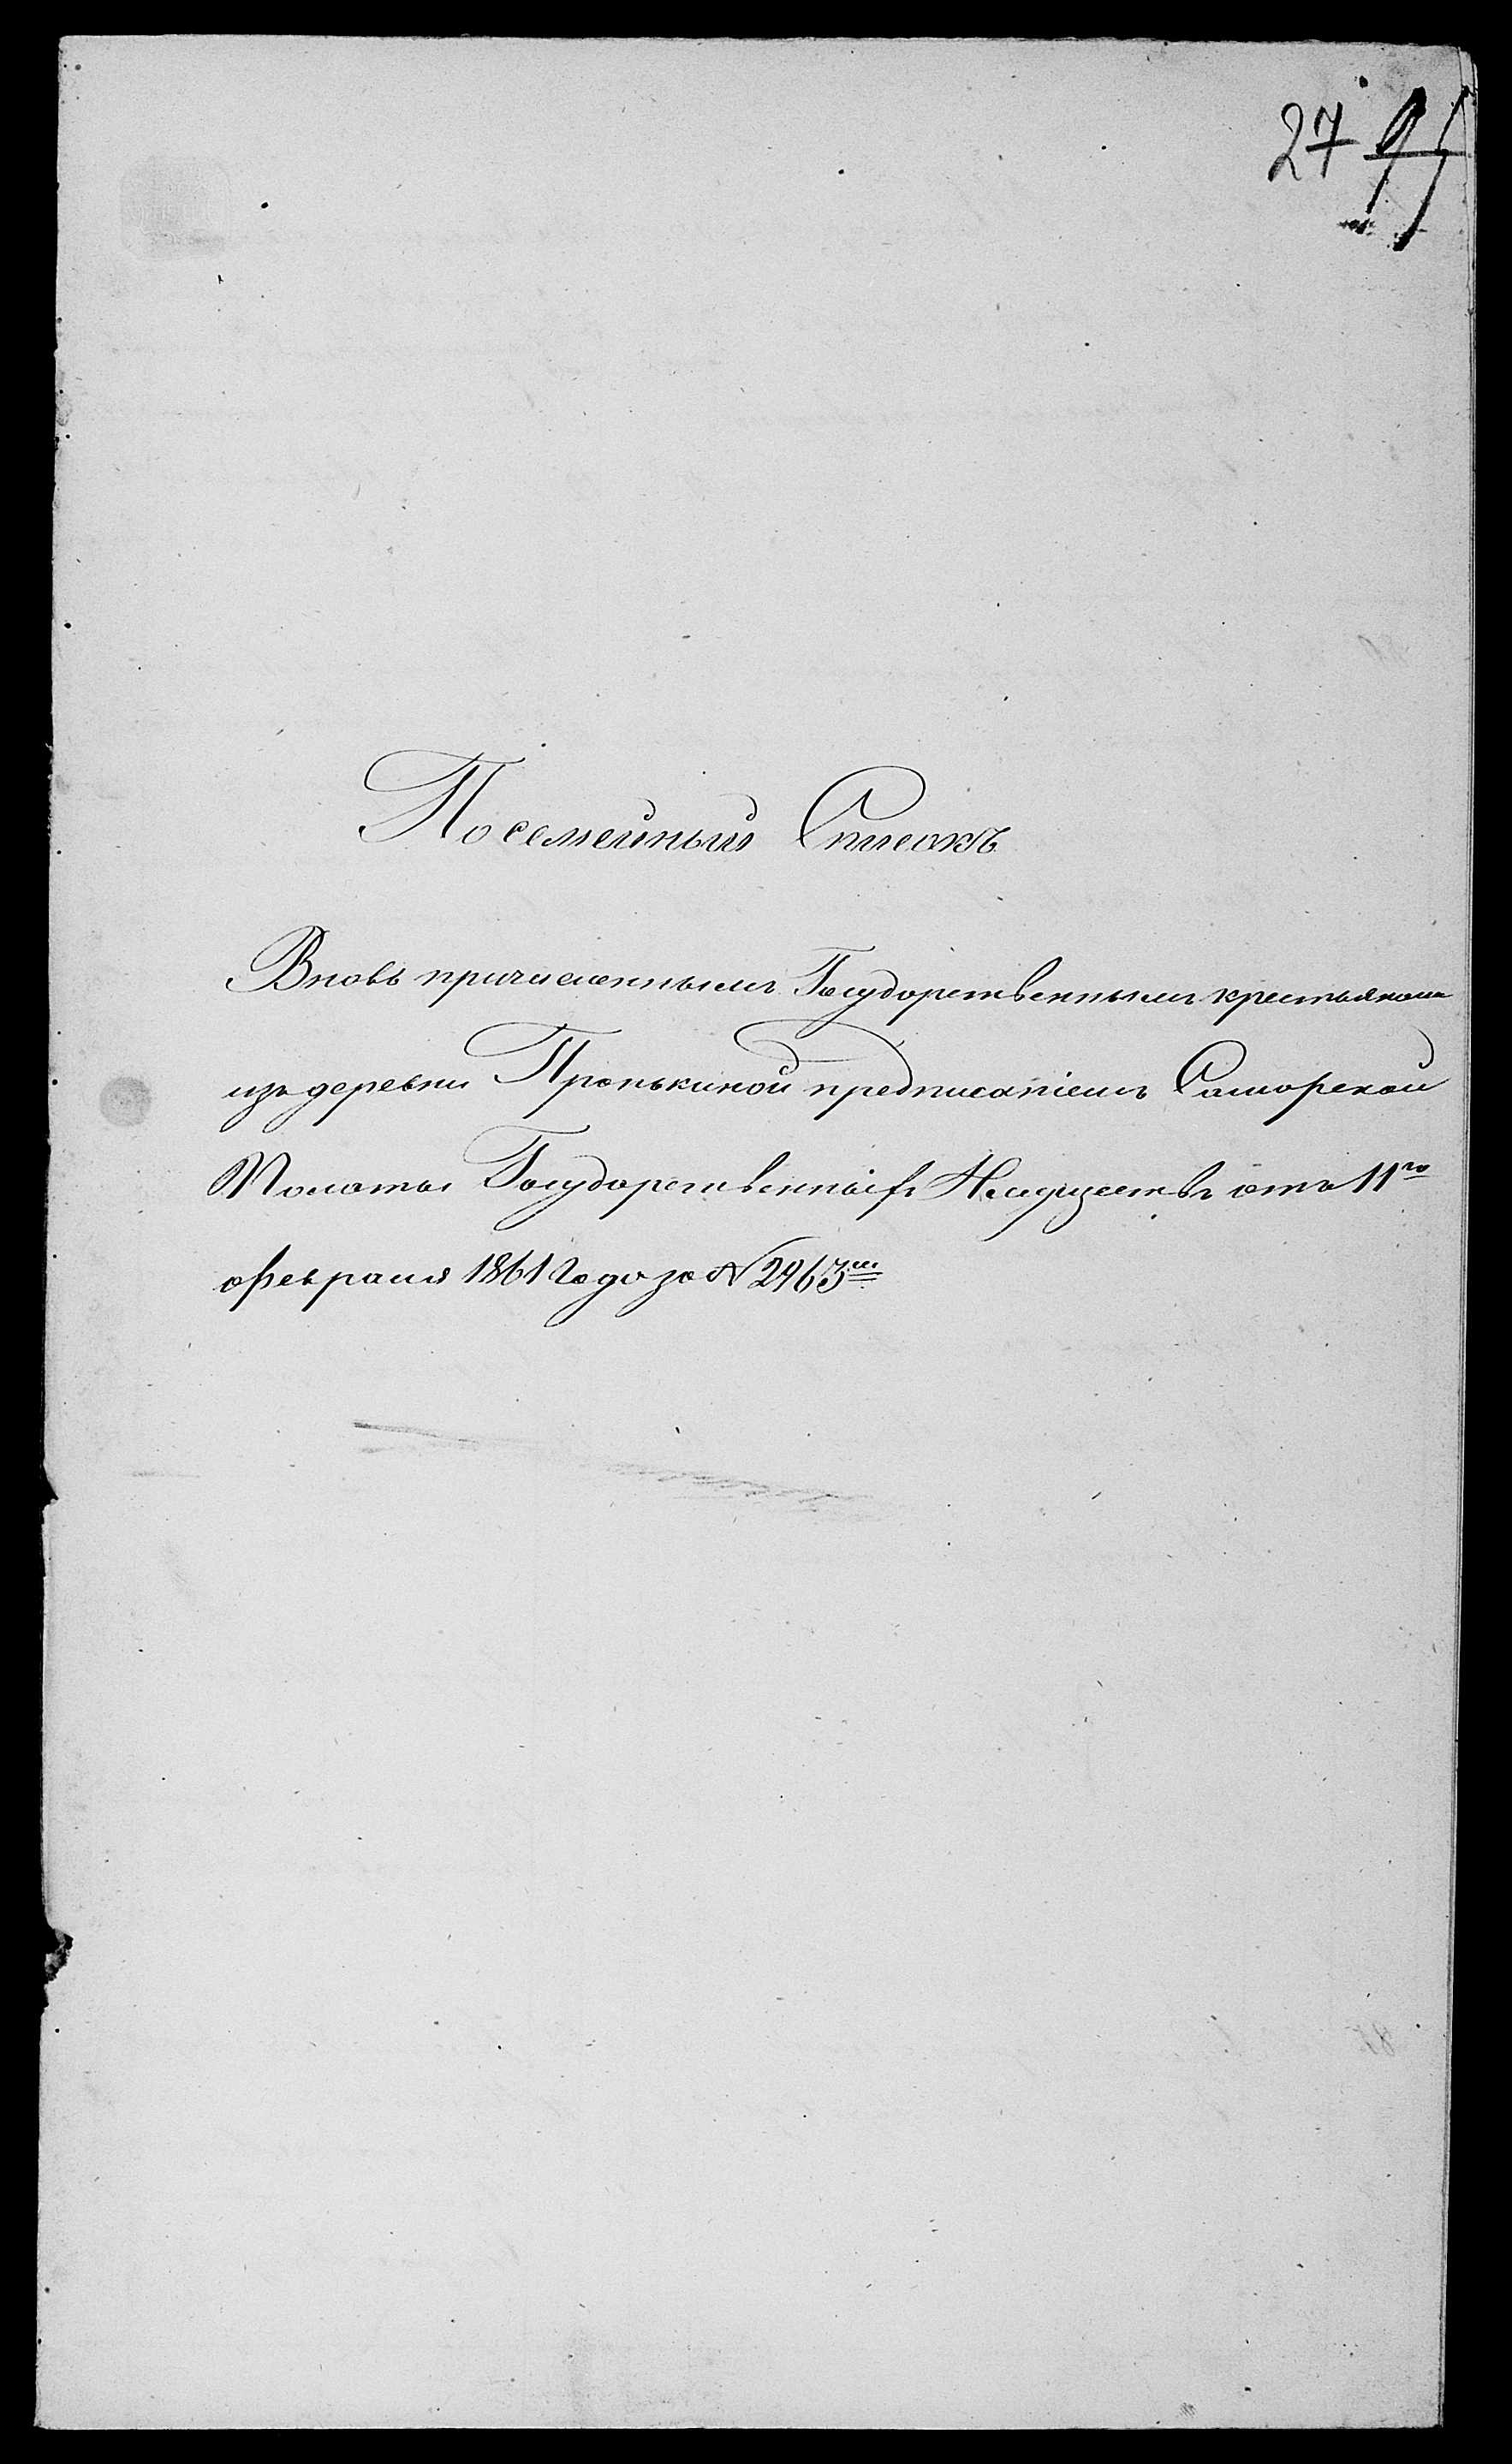 27 95
Посемейный Списокъ
Вновь причисленнымъ Государственнымъ крестьянамъ
изъ деревни Пронькиной предписаніемъ Самарской
Палаты Государственныхъ Имуществъ отъ 11го
февраля 1861 года за № 2963мъ